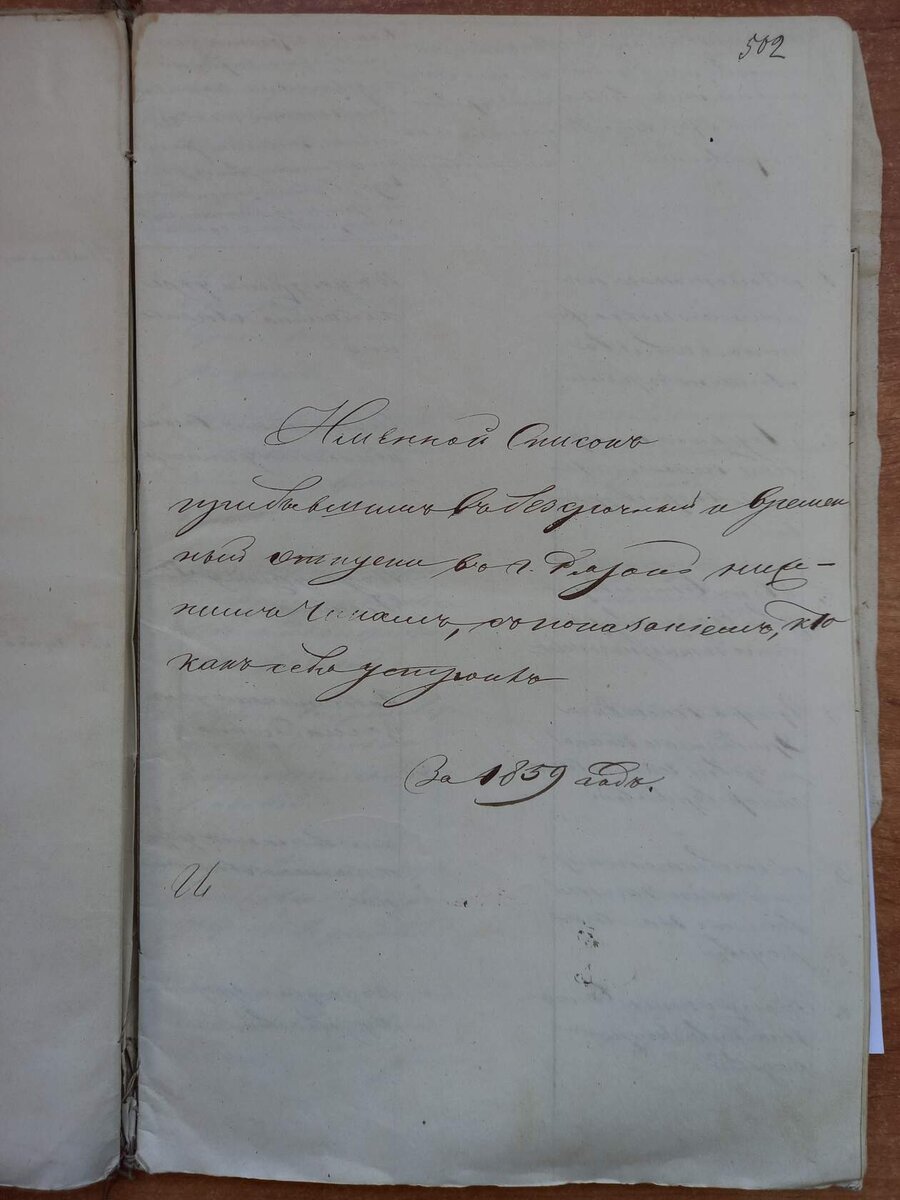 502
Именной Списокъ
прибывшимъ въ безсрочный и времен
ный отпуски въ г. Глазовъ ниж-
нимъ Чинамъ, съ показаніемъ, кто
какъ себя устроилъ
За 1859 годъ.
И